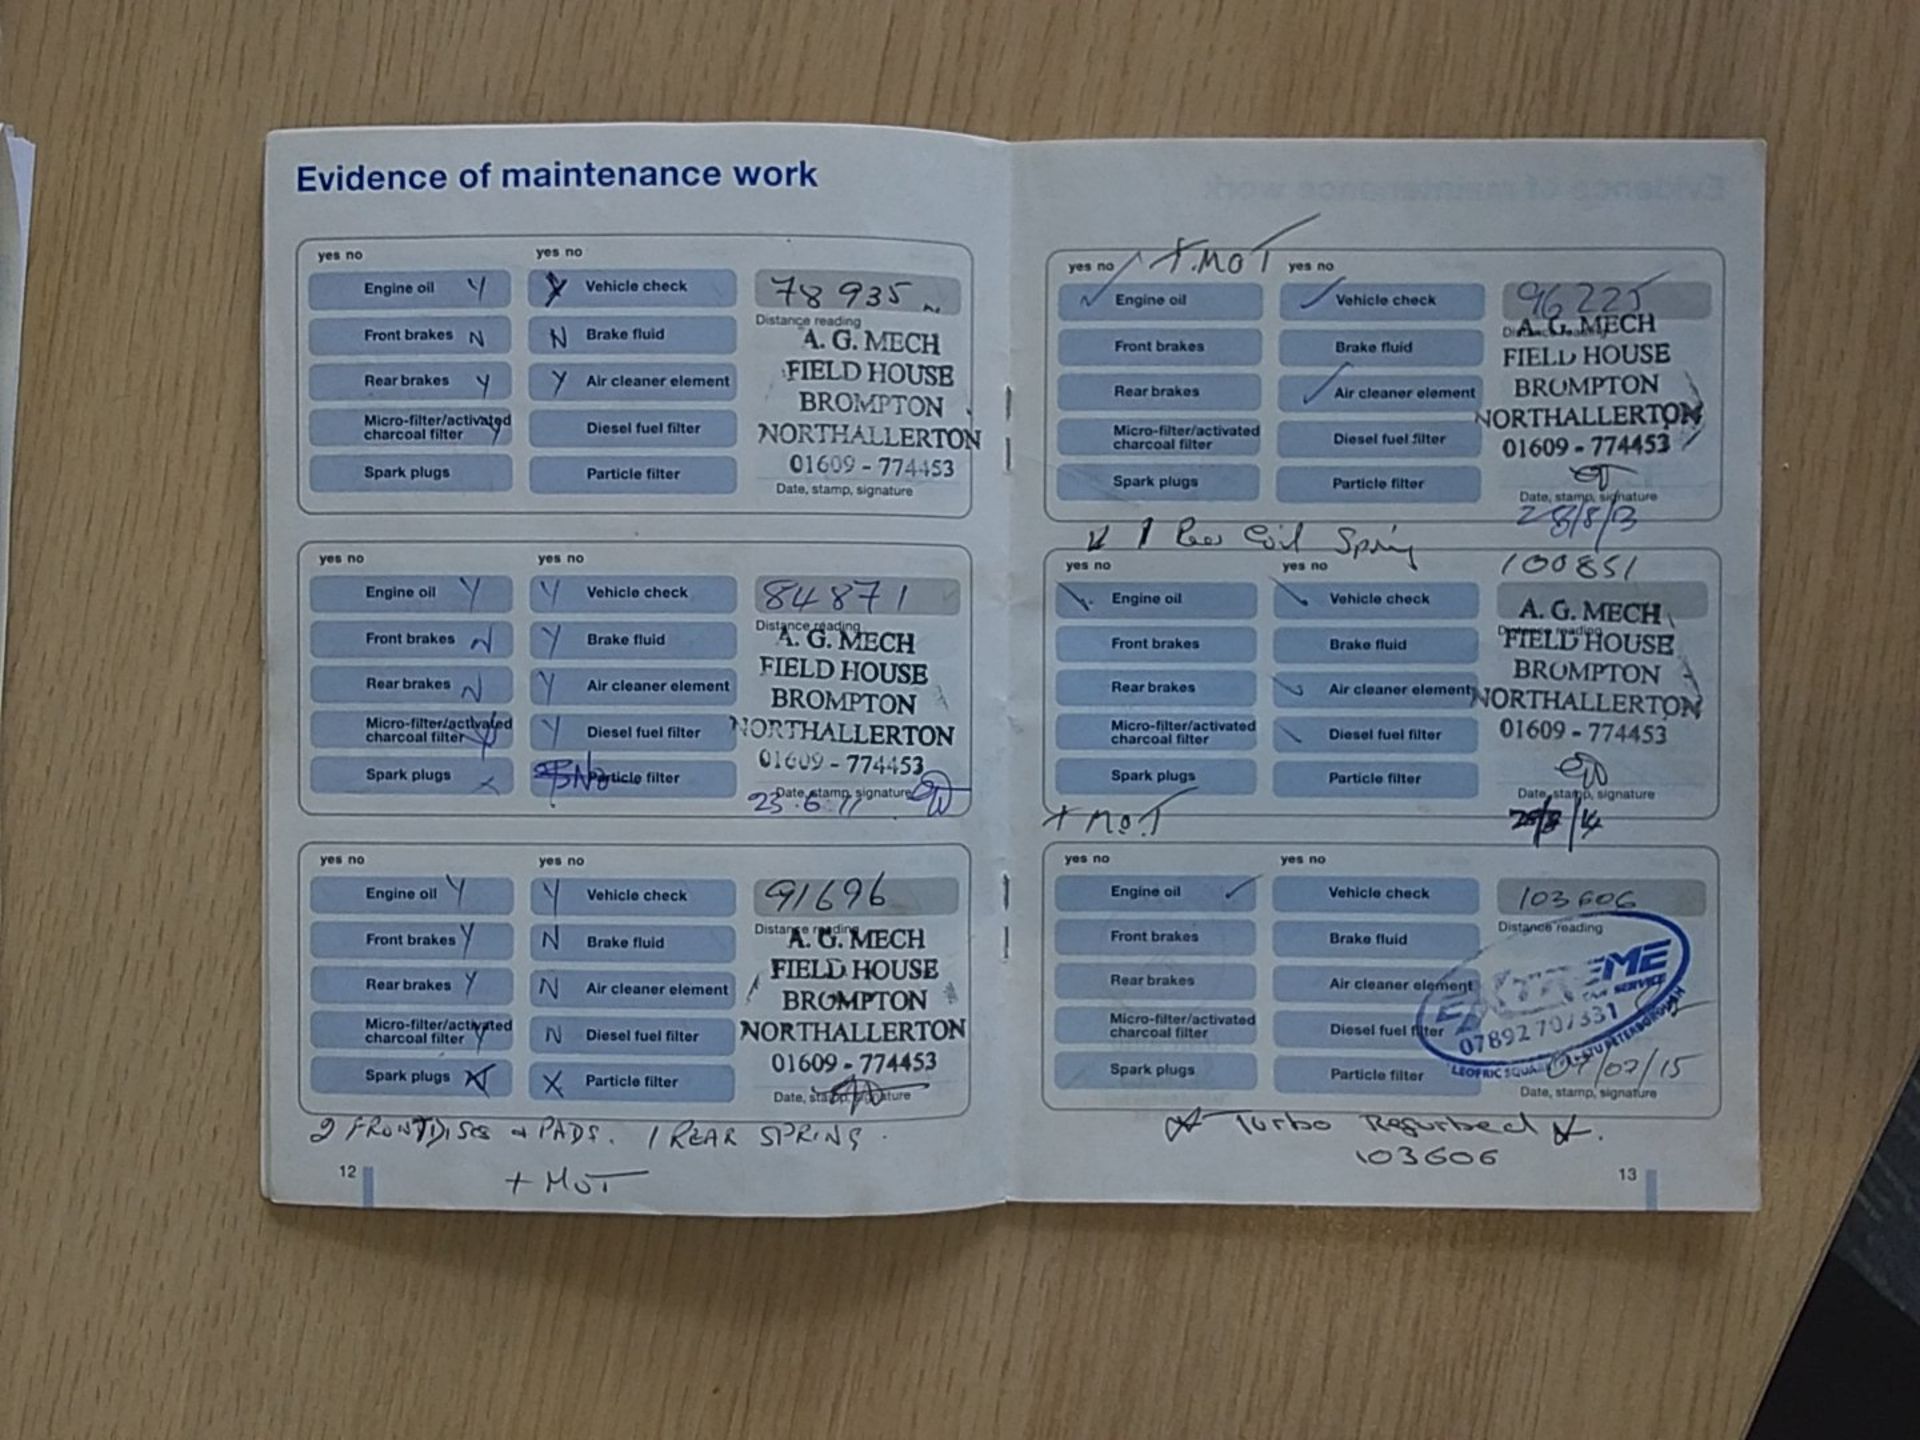 Evidence of maintenance work
yes no
yes no
Engine oil Y
Y Vehicle check
78 935
Front brakes N
N Brake fluid
Distance reading
Rear brakes Y
Y Air cleaner element
Micro-filter/activated
charcoal filter Y
Diesel fuel filter
Spark plugs
Particle filter
A. G. MECH
FIELD HOUSE
BROMPTON
NORTHALLERTON
01609 - 774453
Date, stamp, signature
yes no
yes no
Engine oil Y
Y Vehicle check
84871
Front brakes N
Y Brake fluid
Distance reading
Rear brakes N
Y Air cleaner element
Micro-filter/activated
charcoal filter Y
Y Diesel fuel filter
Spark plugs
Particle filter
A. G. MECH
FIELD HOUSE
BROMPTON
NORTHALLERTON
01609 - 774453
Date, stamp, signature
23.6.11
yes no
yes no
Engine oil Y
Y Vehicle check
91696
Front brakes Y
N Brake fluid
Distance reading
Rear brakes Y
N Air cleaner element
Micro-filter/activated
charcoal filter Y
N Diesel fuel filter
Spark plugs
X Particle filter
A. G. MECH
FIELD HOUSE
BROMPTON
NORTHALLERTON
01609 - 774453
Date, stamp, signature
2 FRONT DISCS + PADS. 1 REAR SPRING.
+ MOT
12
+ MOT
yes no
yes no
Engine oil
Vehicle check
96225
Front brakes
Brake fluid
Rear brakes
Air cleaner element
Micro-filter/activated
charcoal filter
Diesel fuel filter
Spark plugs
Particle filter
A. G. MECH
FIELD HOUSE
BROMPTON
NORTHALLERTON
01609 - 774453
Date, stamp, signature
28/8/13
1 Rear Coil Spring
yes no
yes no
100851
Engine oil
Vehicle check
Front brakes
Brake fluid
Rear brakes
Air cleaner element
Micro-filter/activated
charcoal filter
Diesel fuel filter
Spark plugs
Particle filter
A. G. MECH
FIELD HOUSE
BROMPTON
NORTHALLERTON
01609 - 774453
Date, stamp, signature
+ MOT
yes no
yes no
Engine oil
Vehicle check
103606
Front brakes
Brake fluid
Distance reading
Rear brakes
Air cleaner element
Micro-filter/activated
charcoal filter
Diesel fuel filter
Spark plugs
Particle filter
EXTREME
SERVICE
07892 707331
LEOFRIC SQUARE PETERBOROUGH
07/07/15
Date, stamp, signature
Turbo Refurbed
103606
13